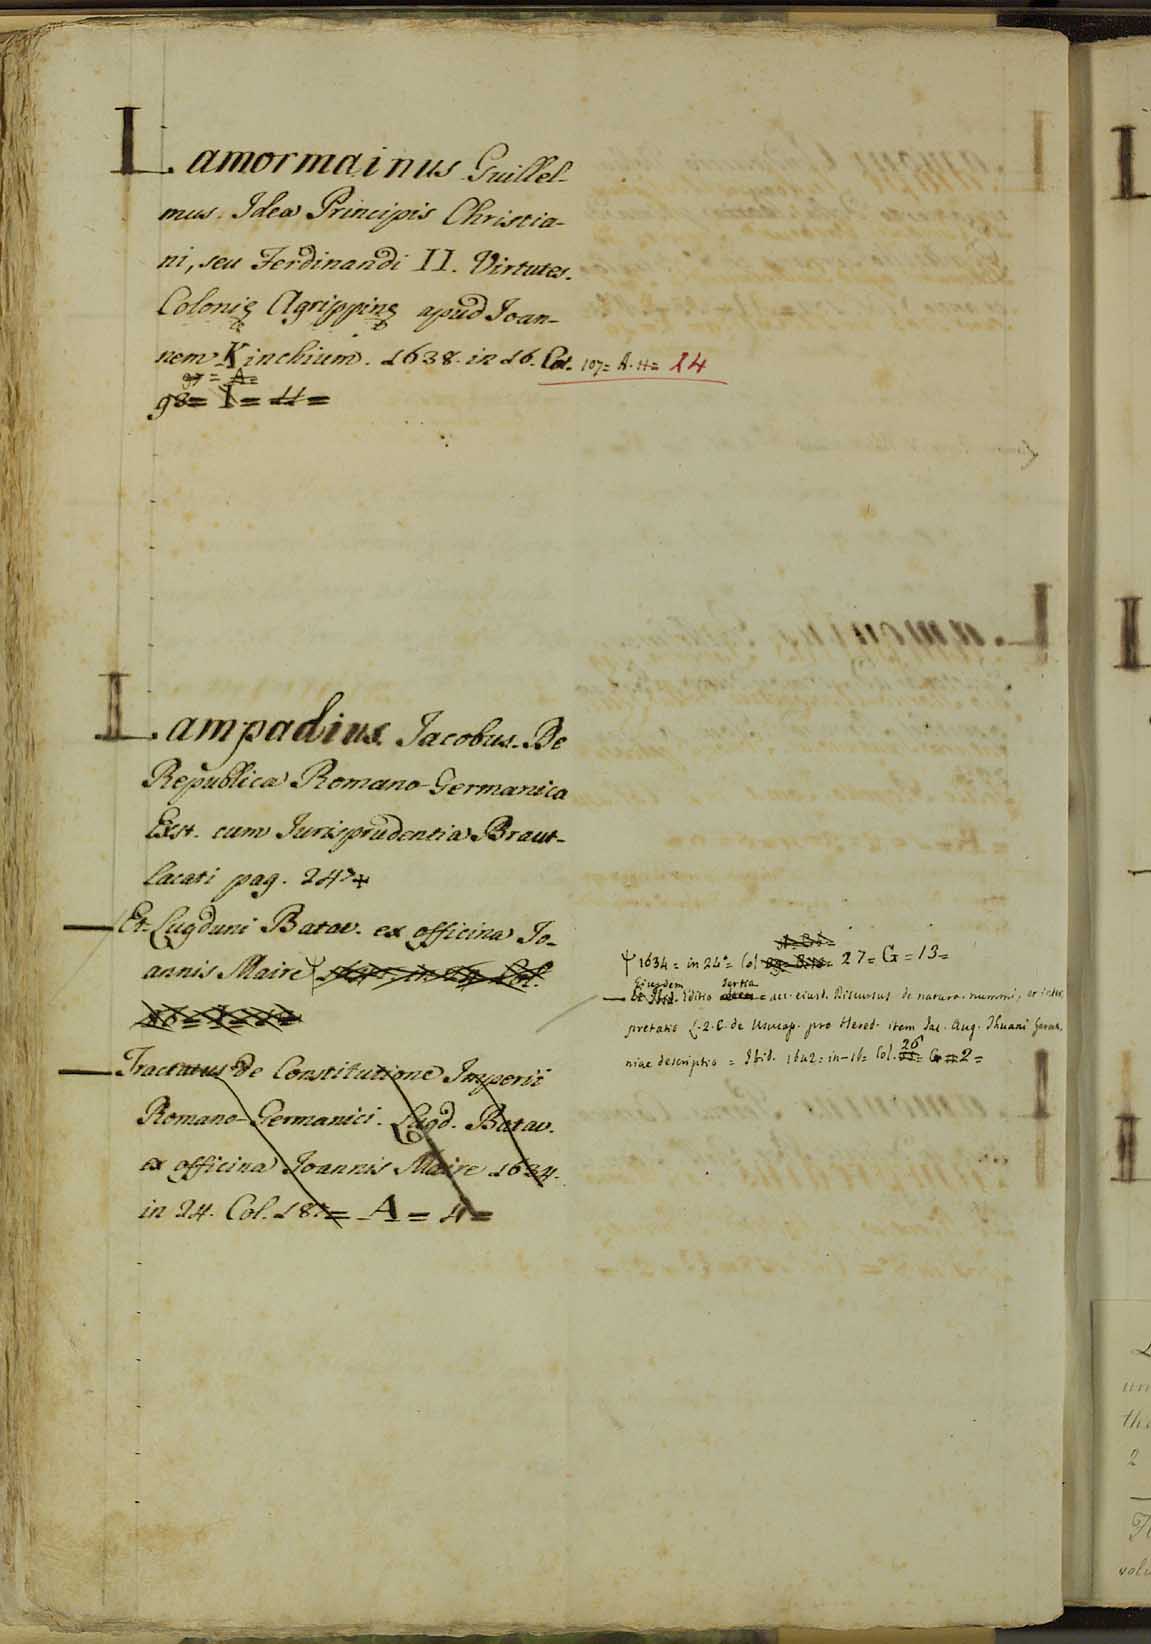 Lamormainus Guillel-
mus. Idea Principis Christia-
ni, seu Ferdinandi II. Virtutes.
Colonię Agrippinę apud Joan-
nem Kinchium. 1638. in 16. Col. 107= A. 4= 24
97 = A=
98= I= 4=
Lampadius Jacobus. De
Republica Romano-Germanica
Exst. cum Jurisprudentia Braut-
lacati pag. 247
Et Lugduni Batav. ex officina Jo-
annis Maire
Tractatus De Constitutione Imperii
Romano-Germanici. Lugd. Batav.
ex officina Joannis Maire 1634.
in 24. Col. 187= A = 4=
1634= in 24°= Col 27= G= 13=
Ejusdem tertia
Et Ibid. Editio = acc. eiusd. Discursus de natura nummi, et inter
pretatio L. 2. C. de Usucap. pro Hered. item Jac. Aug. Thuani Germa
niae descriptio = Ibid. 1642= in-16= Col. 26 = G = 2=